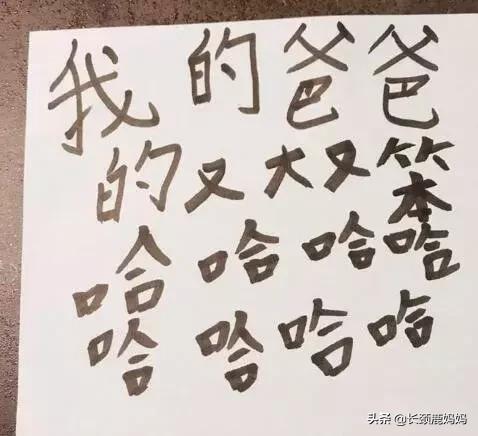 我的爸爸
的又大又笨
哈哈哈哈
哈哈哈哈
头条 @长颈鹿妈妈